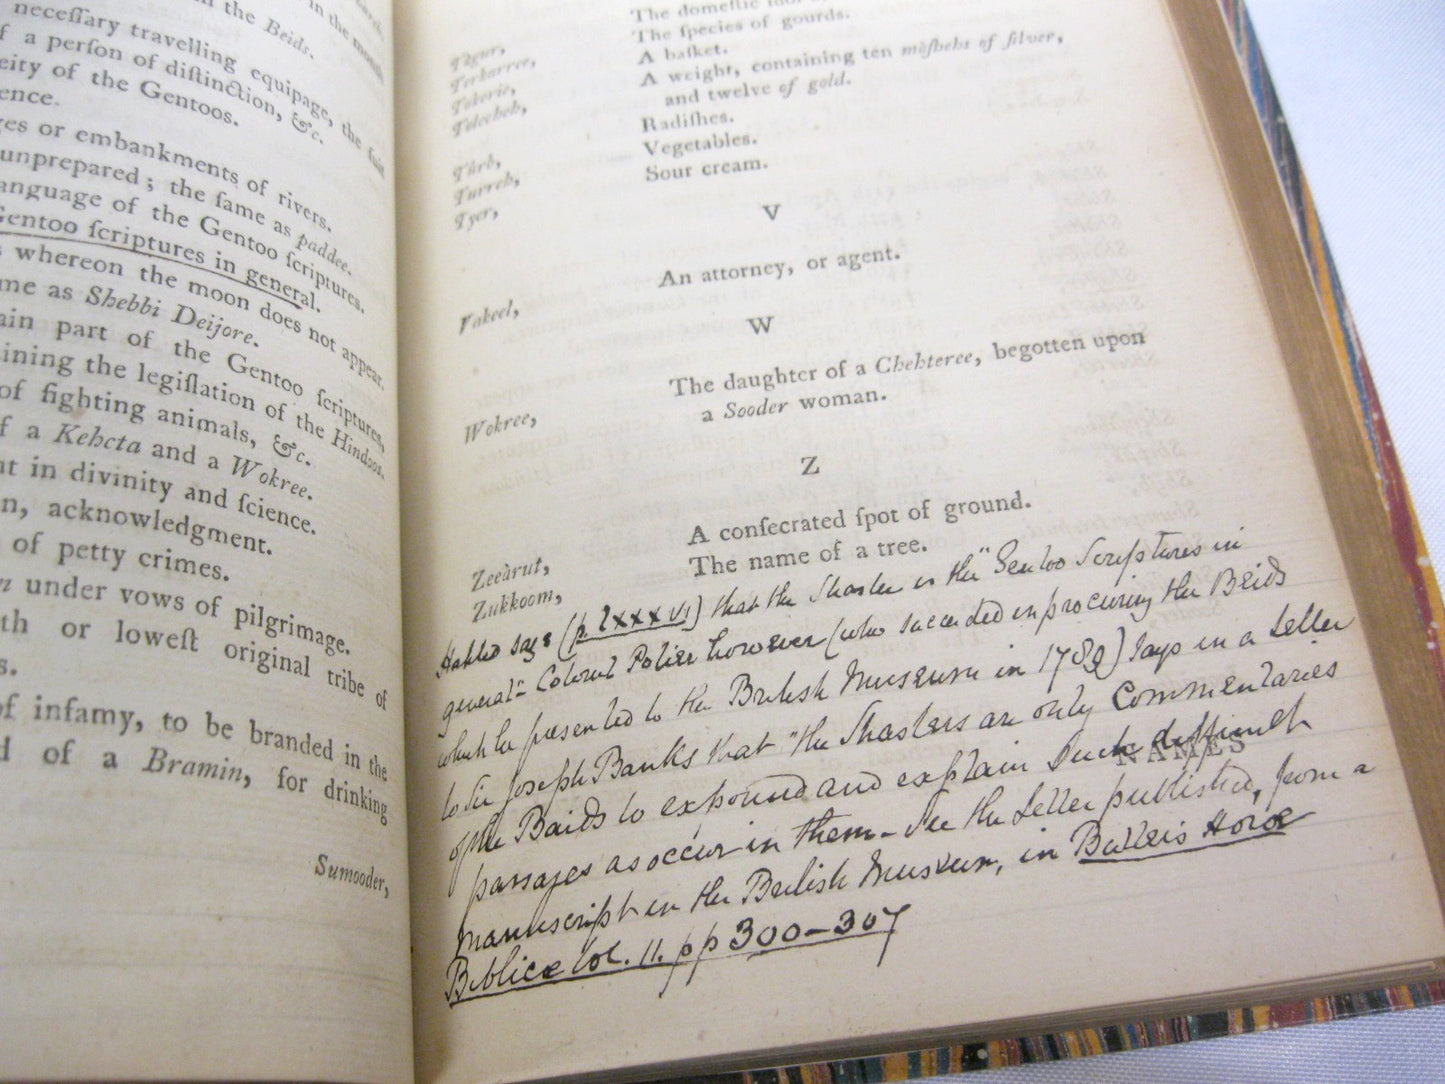 in the month
the Beids.
neceſſary travelling equipage, the ſuit
f a perſon of diſtinction, &c.
eity of the Gentoos.
ence.
ges or embankments of rivers.
unprepared; the ſame as paddee.
anguage of the Gentoo ſcriptures.
Gentoo ſcriptures in general.
s whereon the moon does not appear.
me as Shebbi Deijore.
ain part of the Gentoo ſcriptures,
aining the legiſlation of the Hindoos.
of fighting animals, &c.
f a Kehcta and a Wokree.
nt in divinity and ſcience.
n, acknowledgment.
of petty crimes.
n under vows of pilgrimage.
th or loweſt original tribe of
s.
of infamy, to be branded in the
d of a Bramin, for drinking
Sumooder,
The domeſtic
Tàgur, The ſpecies of gourds.
Terkarree, A baſket.
Tokerie, A weight, containing ten mòſhehs of ſilver,
Tolecheh, and twelve of gold.
Tùrb, Radiſhes.
Turreb, Vegetables.
Tyer, Sour cream.
V
Vakeel, An attorney, or agent.
W
Wokree, The daughter of a Chehteree, begotten upon
a Sooder woman.
Z
Zeeàrut, A conſecrated ſpot of ground.
Zukkoom, The name of a tree.
Halhed says (p. lxxxvi) that the Shaster is the "Gentoo Scriptures in
general" Colonel Polier however (who succeeded in procuring the Beids
which he presented to the British Museum in 1789) says in a Letter
to Sir Joseph Banks that "the Shasters are only Commentaries
of the Baids to expound and explain such difficult
passages as occur in them – See the Letter published, from a
manuscript in the British Museum, in Butler's Horæ
Biblicæ Vol. II. pp 300–307
NAMES